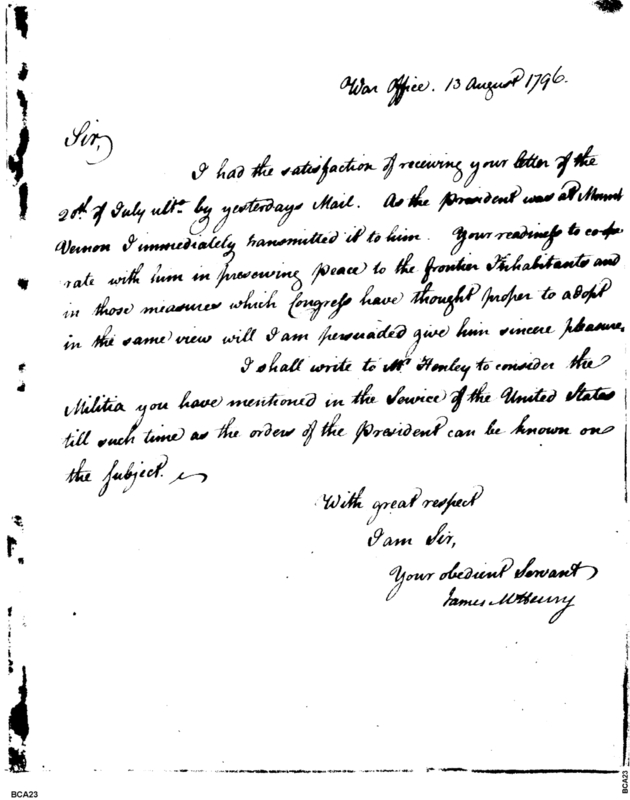 War Office. 13 August 1796.
Sir,
I had the satisfaction of receiving your letter of the
20th of July ulto. by yesterdays Mail. As the President was at Mount
Vernon I immediately transmitted it to him. Your readiness to coope
rate with him in preserving peace to the frontier Inhabitants and
in those measures which Congress have thought proper to adopt
in the same view will I am persuaded give him sincere pleasure.
I shall write to Mr Henley to consider the
Militia you have mentioned in the Service of the United States
till such time as the orders of the President can be known on
the subject.
With great respect
I am Sir,
Your obedient Servant
James McHenry
BCA23
BCA23